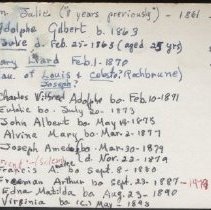 Julie ("8 years previously") - 1861
Adolphe Gilbert b. 1863
d. Feb. 25-1863 (aged 25 yrs)
Mary Feb. 1-1870
of Louis &
Joseph?
Charles Wilfred Adolphe bo. Feb. 10-1871
Eulalie bo. July 20-1873
John Albert bo. May 14-1875
Alvina Mary bo. Mar. 2-1877
Joseph Amedee bo. Mar. 30-1879
bd Nov. 22-1879
Francis A bo. Sept. 8-1880
Freeman Arthur bo. Sept. 23-1887-1978
Edna Matilda bo. Aug. 23-1890
Virginia bo (c.) May 1893